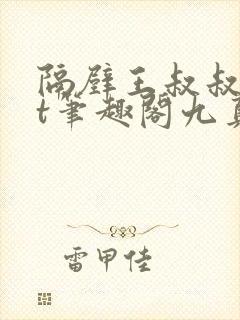 隔壁王叔叔
t笔趣阁九
雷甲佳